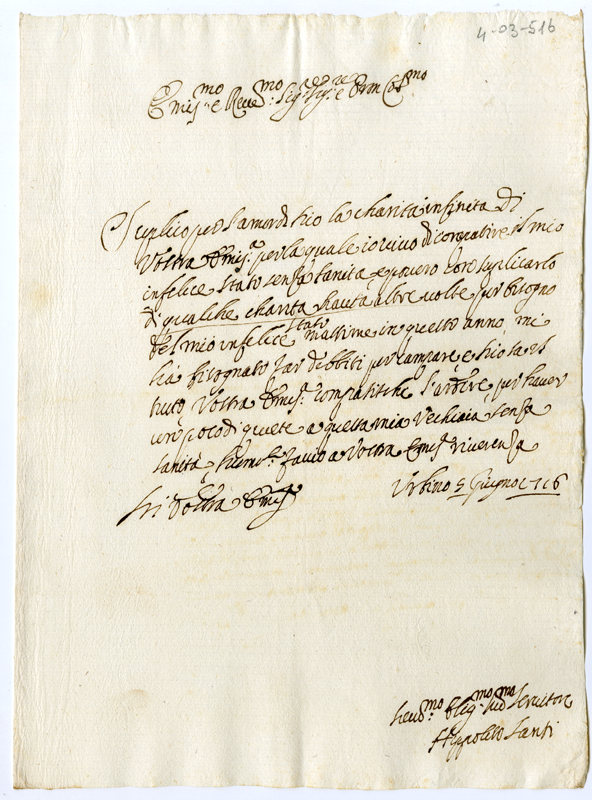 4-03-516
Emis.mo e Reve.mo Sig.r Sig.re e Prn Col.mo
Suplico per l'amor di Dio la charità infinita di
Vostra Emis.a per la quale io vivo di                 il mio
infelice stato senza sanità, e povero          suplicarlo
di qualche charità hauta altre volte per bisogno
del mio infelice stato massime in questo anno, mi
hà bisognato far debbiti per campare, e Dio sa il
tutto Vostra Emis.a compatischi l'ardire per haver
un poco di quiete a questa mia Vechiaia, senza
sanità, e humil.te faccio a Vostra Emis.a riverenza
Di Vostra Emis.a
Urbino 5 Giugno 1716
Devo.mo Oblig.mo Servitore
Hippolito Santi